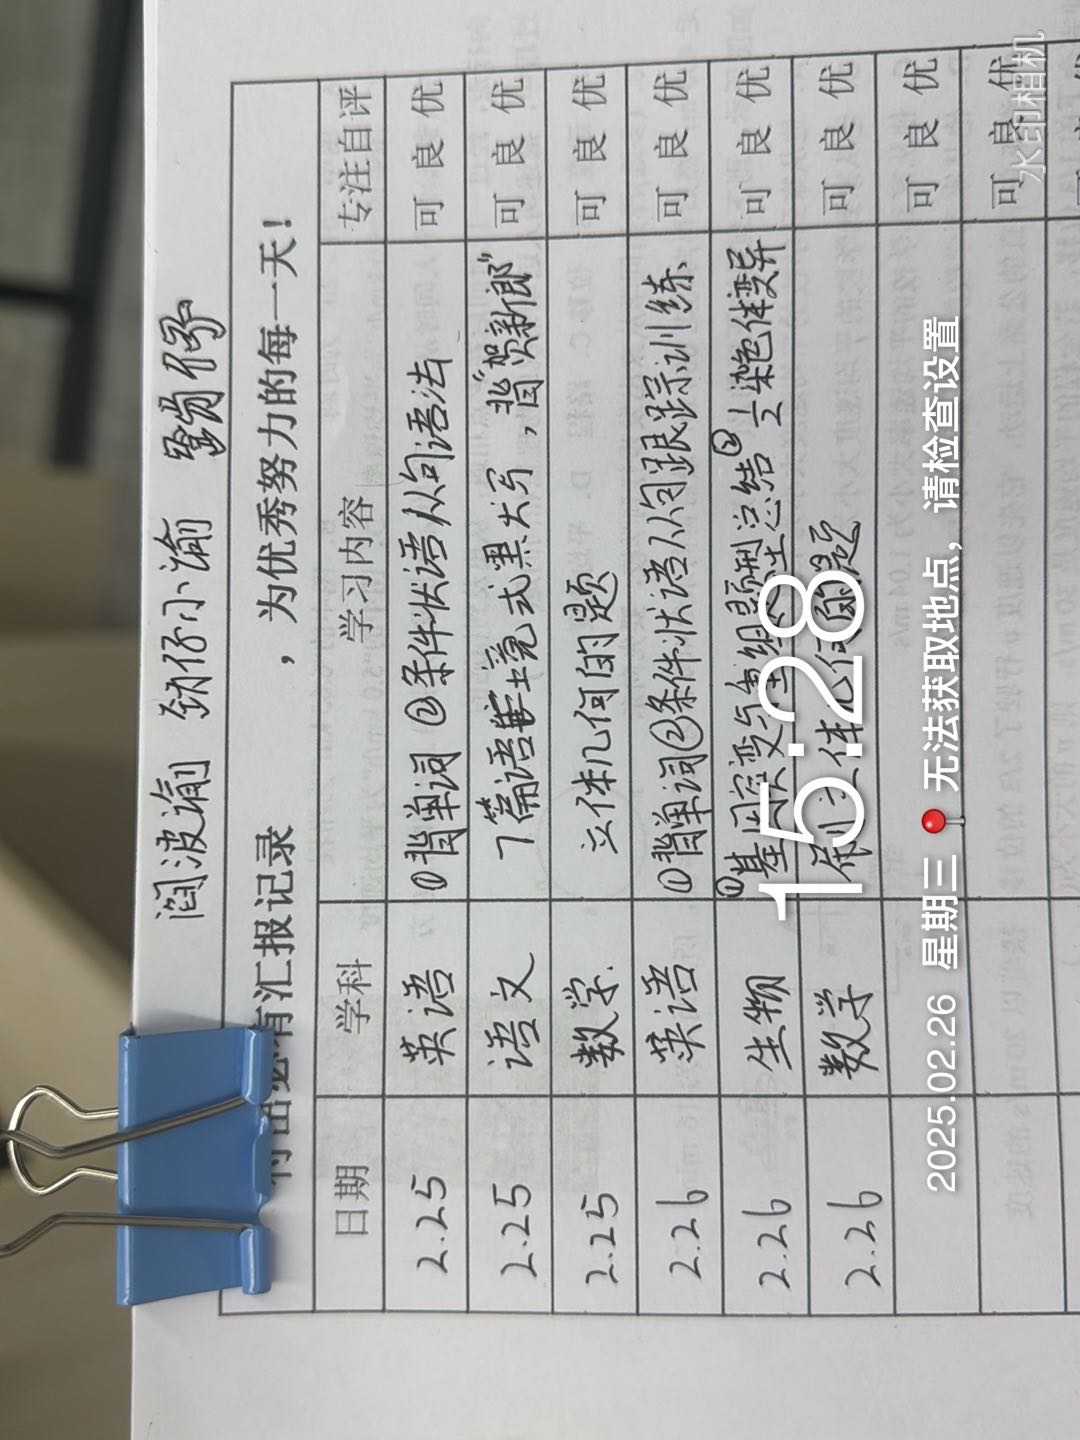 阎波瀚
有汇报记录 ，为优秀努力的每一天！
日期 学科 学习内容 专注自评
2.25 英语 ①背单词 ②条件状语从句语法 可 良 优
2.25 语文 7篇语言 境式黑大写，背“贺新郎” 可 良 优
2.25 数学 立体几何的题 可 良 优
2.26 英语 ①背单词②条件状语从句跟踪训练 可 良 优
2.26 生物 ①基因突变与重组题型总结 ② 染色体变异 可 良 优
2.26 数学 刷立体几何 题 可 良 优
可 良 优
可 良 优
15:28
2025.02.26 星期三 无法获取地点，请检查设置
水印相机